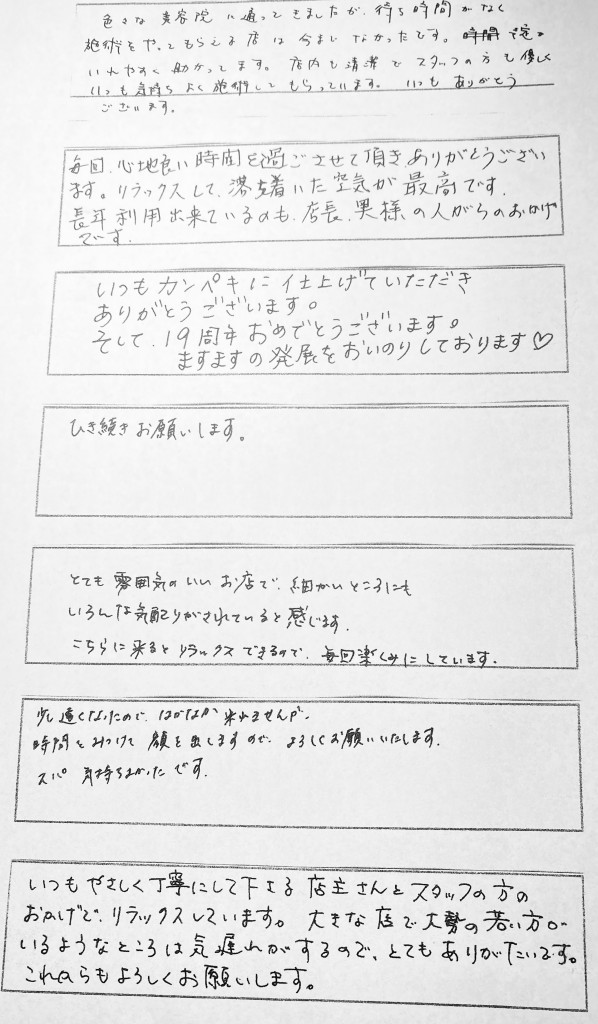 色々な美容院に通ってきましたが、待ち時間がなく
施術をやってもらえる店は今までなかったです。時間が
いれやすく助かってます。店内も清潔でスタッフの方も優しく
いつも気持ちよく施術してもらっています。いつもありがとう
ございます。
毎回、心地良い時間を過ごさせて頂きありがとうござい
ます。リラックスして、落ち着いた空気が最高です。
長年利用出来ているのも、店長、奥様、の人がらのおかげ
です。
いつもカンペキに仕上げていただき
ありがとうございます。
そして、19周年おめでとうございます。
ますますの発展をおいのりしております♡
ひき続きお願いします。
とても雰囲気のいいお店で、細かいところにも
いろんな気配りがされていると感じます。
こちらに来るとリラックスできるので、毎回楽しみにしています。
少し遠くなったので、なかなか来れませんが、
時間をみつけて顔を出しますので、よろしくお願いいたします。
スパ 気持ちよかったです。
いつもやさしく丁寧にして下さる店主さんとスタッフの方の
おかげで、リラックスしています。大きな店で大勢の若い方が
いるようなところは気遅れがするので、とてもありがたいです。
これからもよろしくお願いします。